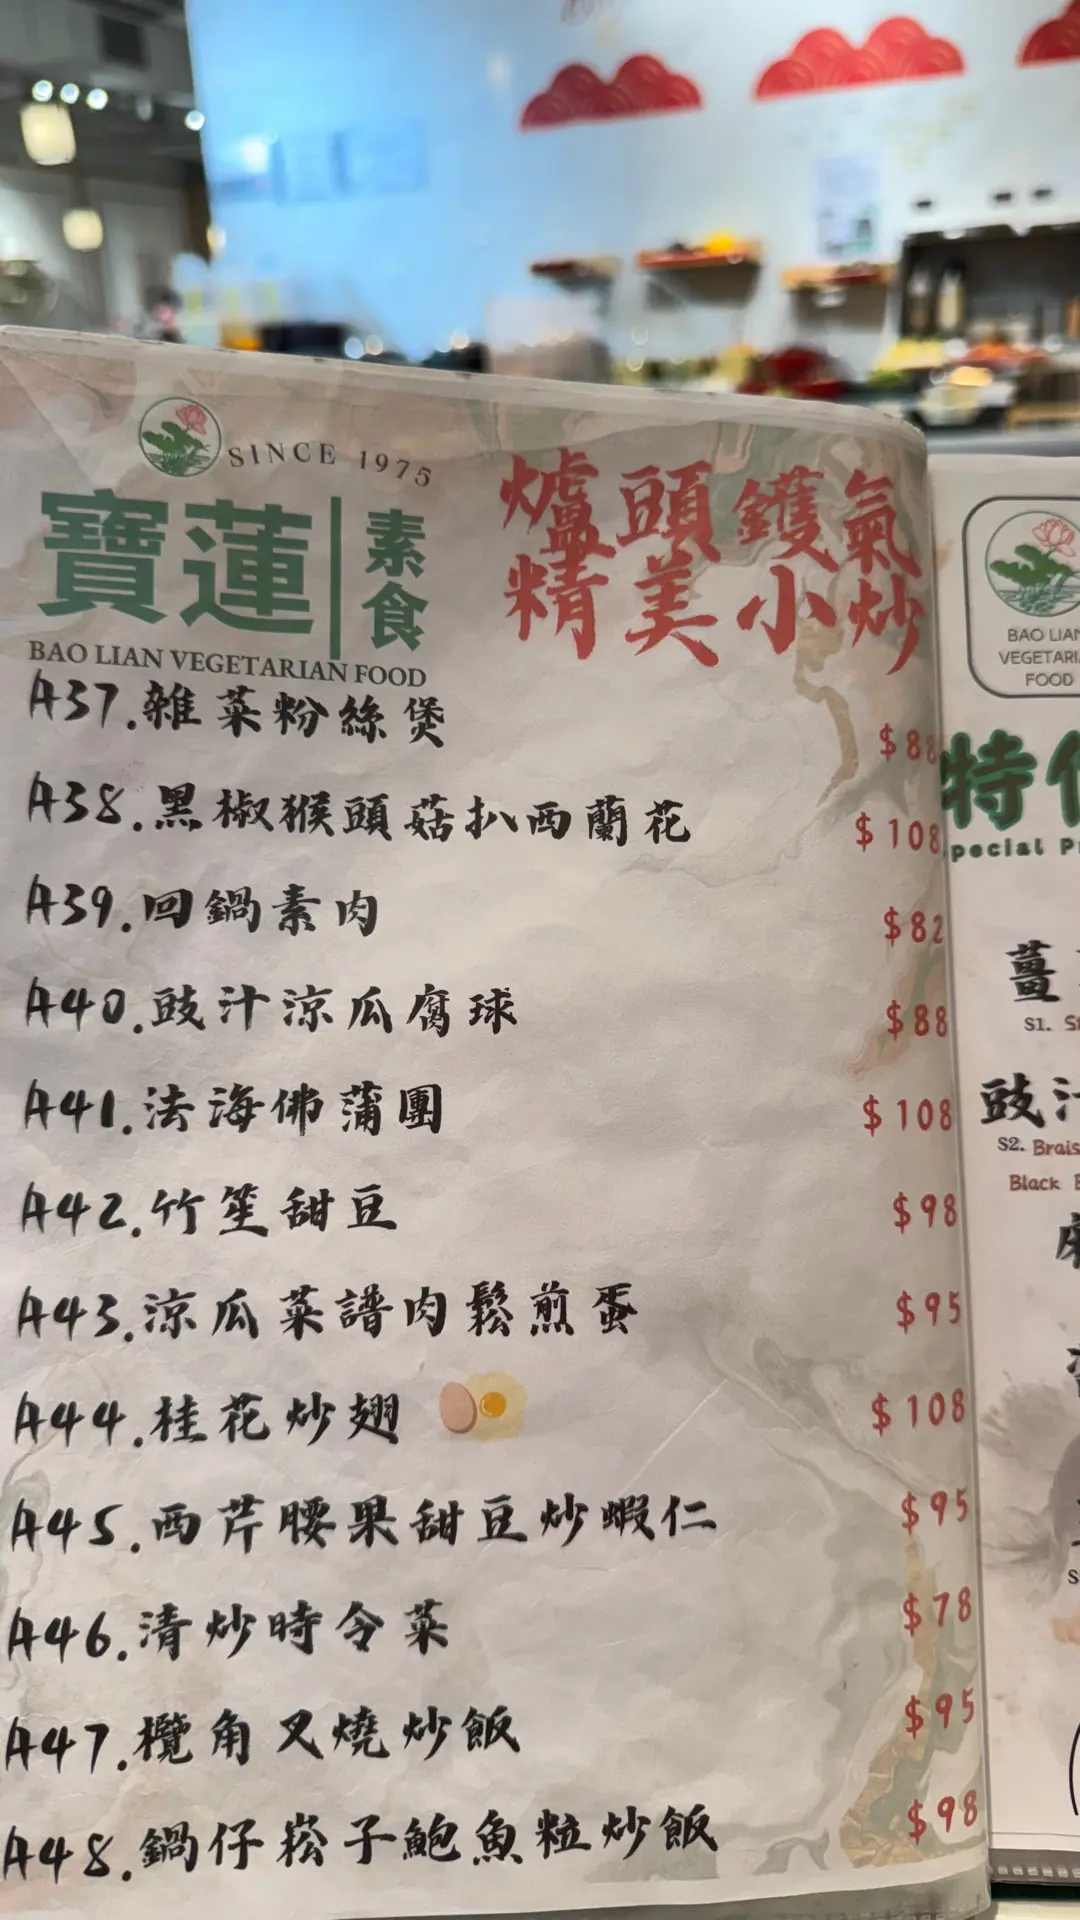 SINCE 1975
寶蓮 素食
BAO LIAN VEGETARIAN FOOD
爐頭鑊氣
精美小炒
A37.雜菜粉絲煲 $88
A38.黑椒猴頭菇扒西蘭花 $108
A39.回鍋素肉 $82
A40.豉汁涼瓜腐球 $88
A41.法海佛蒲團 $108
A42.竹笙甜豆 $98
A43.涼瓜菜譜肉鬆煎蛋 $95
A44.桂花炒翅 $108
A45.西芹腰果甜豆炒蝦仁 $95
A46.清炒時令菜 $78
A47.欖角叉燒炒飯 $95
A48.鍋仔崧子鮑魚粒炒飯 $98
BAO LIAN
VEGETARIA
FOOD
特
pecial P
薑
S1.
豉汁
S2. Brais
Black